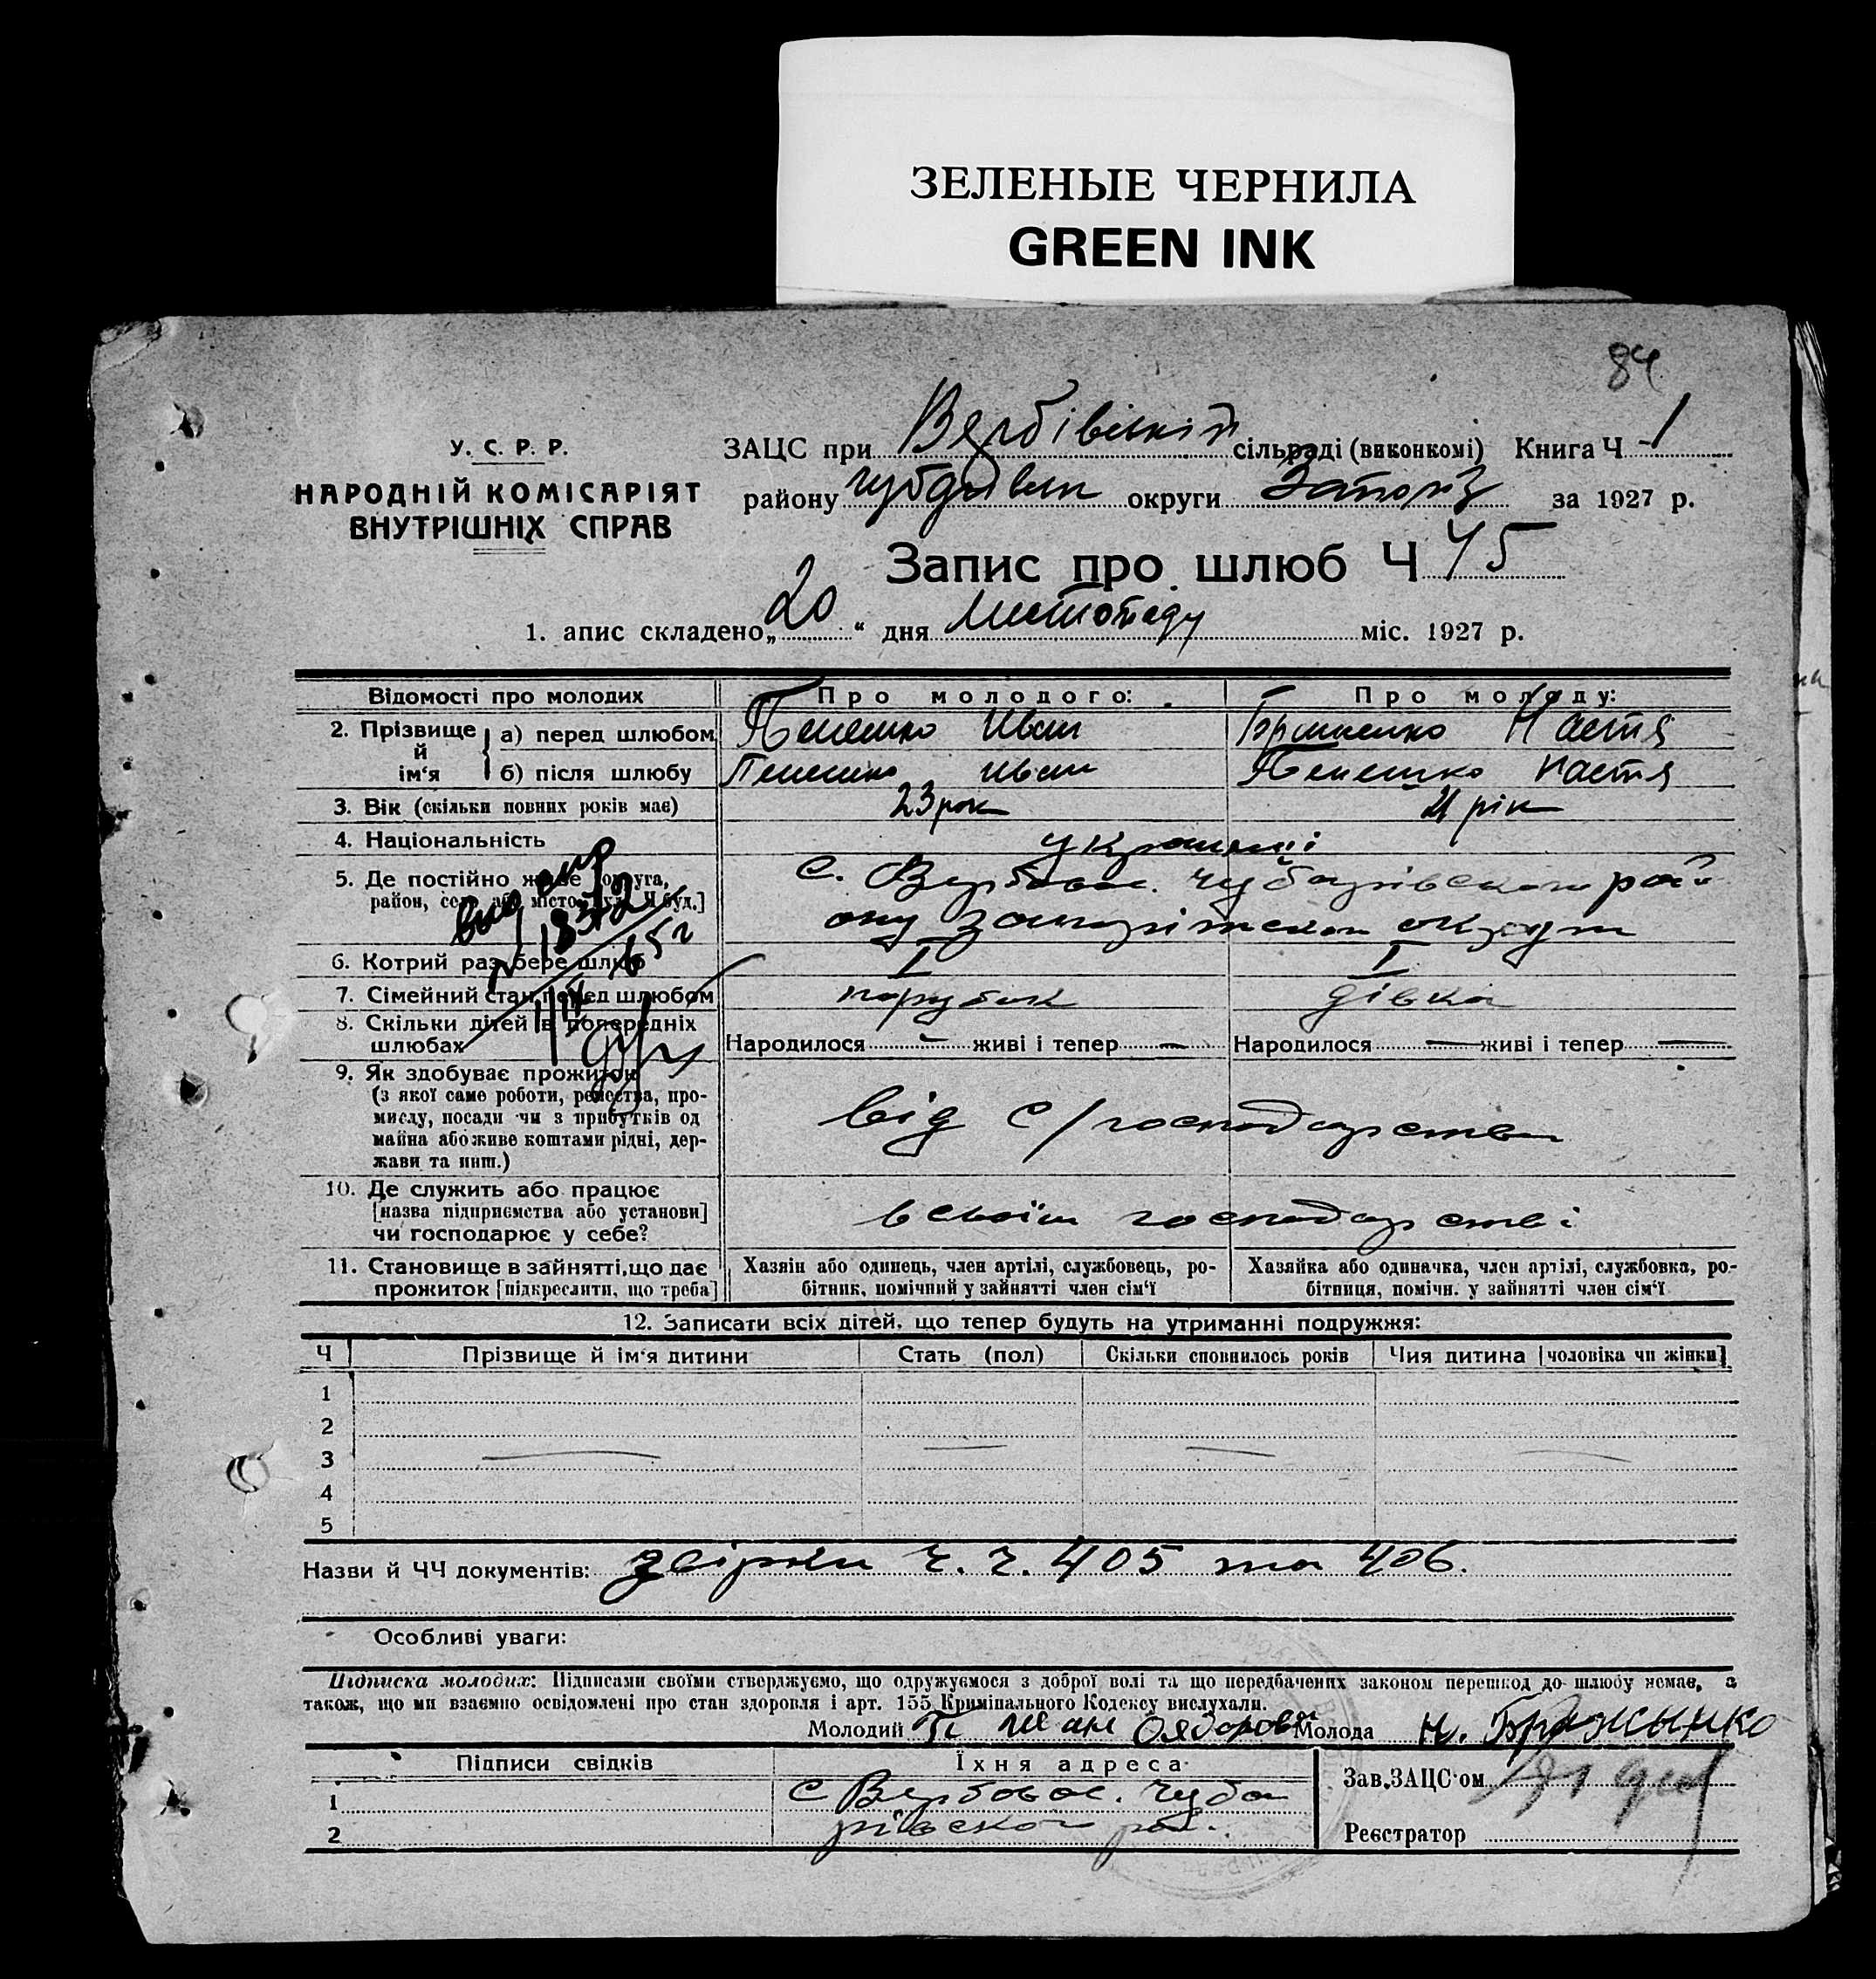 ЗЕЛЕНЫЕ ЧЕРНИЛА
GREEN INK
84
У. С. Р. Р.
НАРОДНІЙ КОМІСАРІЯТ
ВНУТРІШНІХ СПРАВ
ЗАЦС при Вербівській сільраді (виконкомі) Книга Ч 1
району округи Запоріз за 1927 р.
Запис про шлюб Ч 45
1. апис складено „20“ дня листопаду міс. 1927 р.
Відомості про молодих Про молодого: Про молоду:
2. Прізвище й ім'я а) перед шлюбом Іван Настя
б) після шлюбу Іван Настя
3. Вік (скільки повних років має) 23 рок 21 рік
4. Національність українці
5. Де постійно живе [округа, район, село або місто, вул. Ч буд.] С. Вербовое. Чубарівського рай
ону запорізької округи
6. Котрий раз бере шлюб I I
7. Сімейний стан перед шлюбом парубок дівка
8. Скільки дітей в попередніх шлюбах Народилося — живі і тепер — Народилося — живі і тепер —
9. Як здобуває прожиток
(з якої саме роботи, ремества, про-
мислу, посади чи з прибутків од
майна або живе коштами рідні, дер-
жави та инш.) від с/господарства
10. Де служить або працює
[назва підприємства або установи]
чи господарює у себе? в своїм господарстві
11. Становище в зайнятті, що дає прожиток [підкреслити, що треба] Хазяін або одинець, член артілі, службовець, ро-
бітник, помічний у зайнятті член сім'ї Хазяйка або одиначка, член артілі, службовка, ро-
бітниця, помічн. у зайнятті член сім'ї
12. Записати всіх дітей, що тепер будуть на утриманні подружжя:
Ч Прізвище й ім'я дитини Стать (пол) Скільки сповнилось років Чия дитина [чоловіка чи жінки]
1
2
3
4
5
Назви й ЧЧ документів: Звірки ч. ч. 405 та 406.
Особливі уваги:
Підписка молодих: Підписами своїми стверджуємо, що одружуємося з доброї волі та що передбачених законом перешкод до шлюбу немає, а
також, що ми взаємно освідомлені про стан здоровля і арт. 155 Кримінального Кодексу вислухали.
Молодий Молода Н. Бражынко
Підписи свідків Їхня адреса Зав. ЗАЦС'ом
1 С Вербовое. Чуба
2 рівского рай. Реєстратор